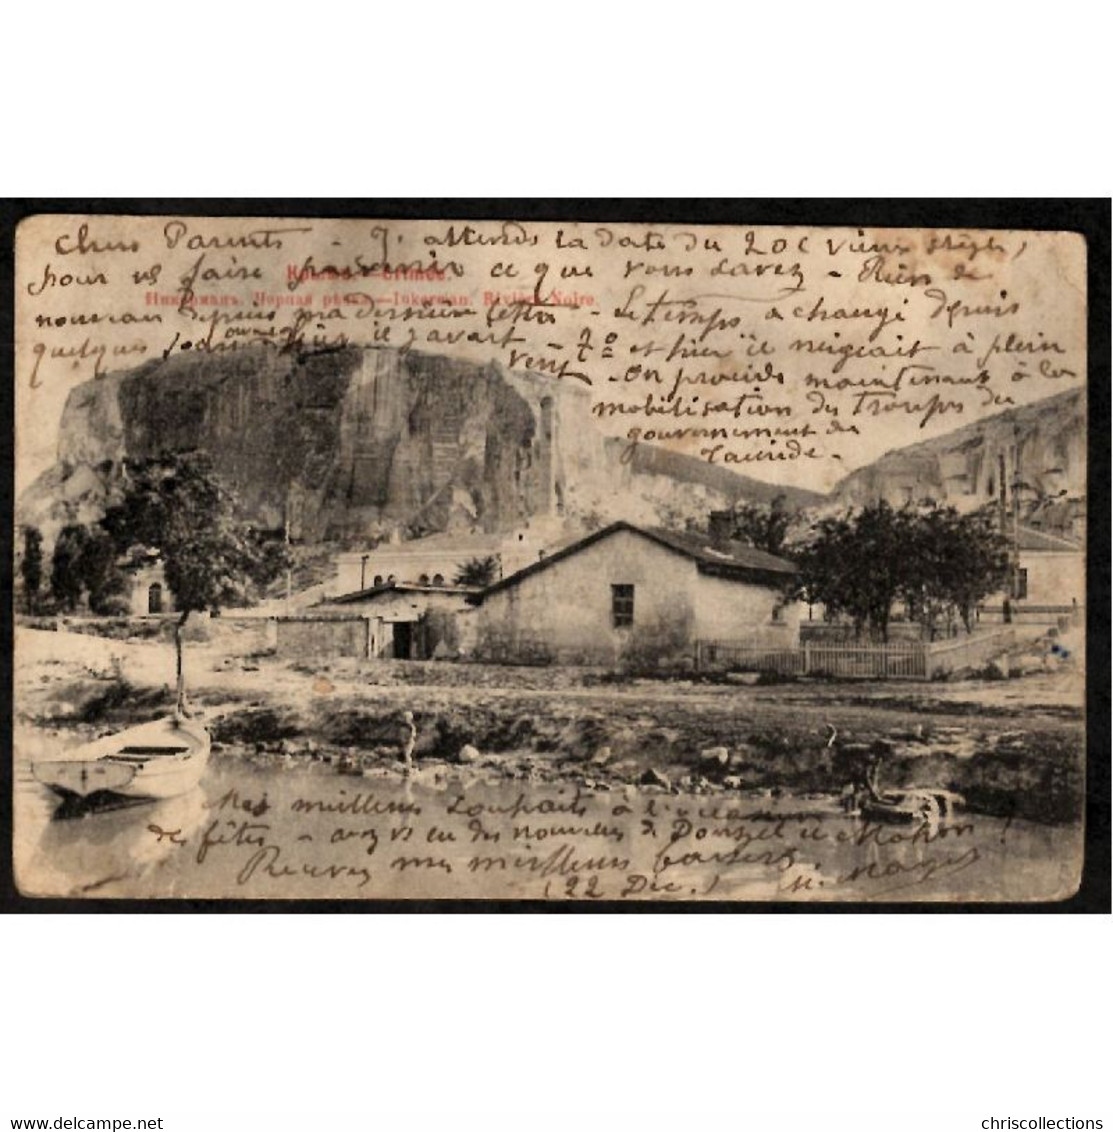 Chers Parents - J'attends la date du 20 (vieux style)
pour vs faire parvenir ce que vous savez - Rien de
Крымъ.—Crimée.
Инкерманъ. Черная рѣчка.—Inkerman. Rivière Noire.
nouveau depuis ma dernière lettre - Le temps a changé depuis
quelques jours il y avait - 7° et hier il neigeait à plein
vent - On procède maintenant à la
mobilisation des Troupes du
gouvernement de
Tauride.-
Mes meilleurs souhaits à l'occasion
de fêtes - avez vs eu des nouvelles de et Mahon ?
Recevez mes meilleurs baisers.
(22 Dec.)
www.delcampe.net
chriscollections